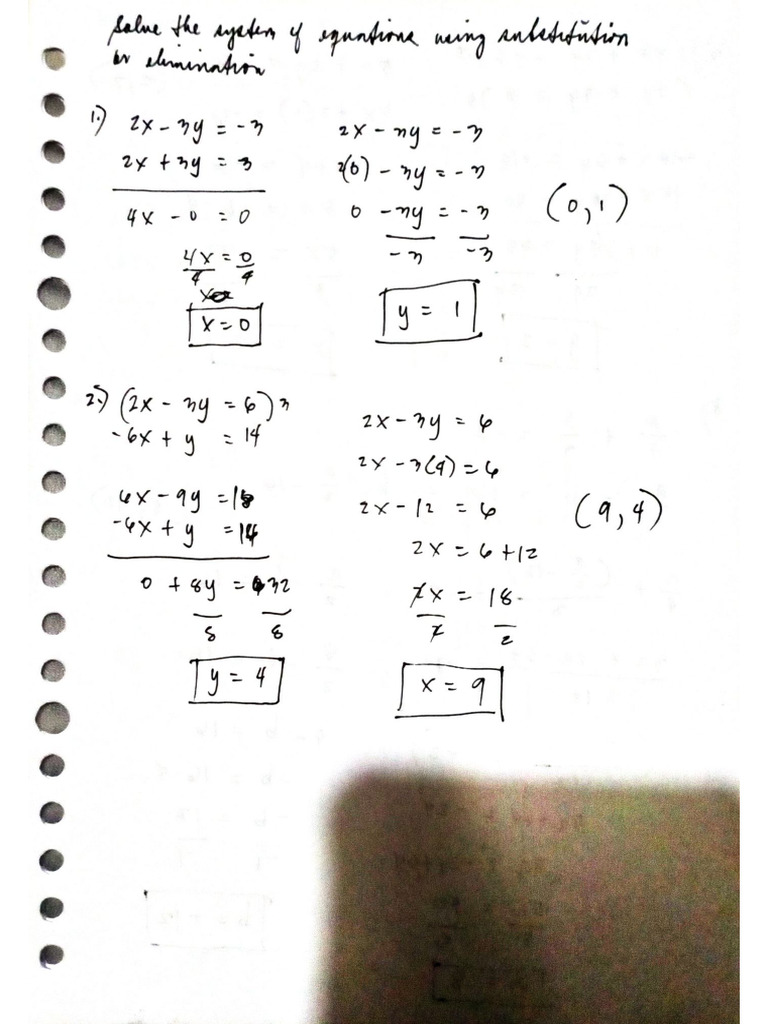 Solve the system of equations using substitution
or elimination
1.) 2x - 3y = -3
2x + 3y = 3
4x - 0 = 0
4x = 0
4 4
x = 0
2x - 3y = -3
2(0) - 3y = -3
0 - 3y = -3
-3 -3
y = 1
(0, 1)
2.) (2x - 3y = 6) 3
-6x + y = 14
6x - 9y = 18
-6x + y = 14
0 + 8y = 32
8 8
y = 4
2x - 3y = 6
2x - 3(4) = 6
2x - 12 = 6
2x = 6 + 12
2x = 18
2 2
x = 9
(9, 4)